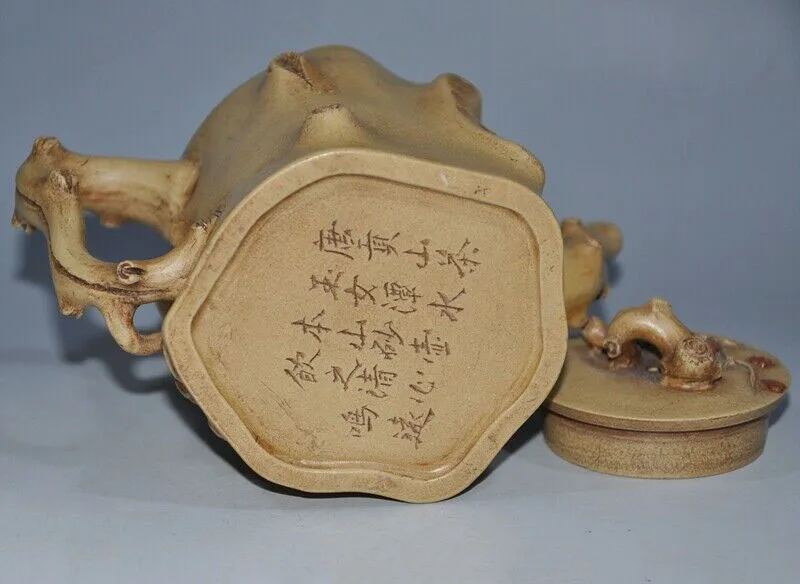 唐貢山茶
玉女潭水
本山砂壺
飲之清心
鳴遠